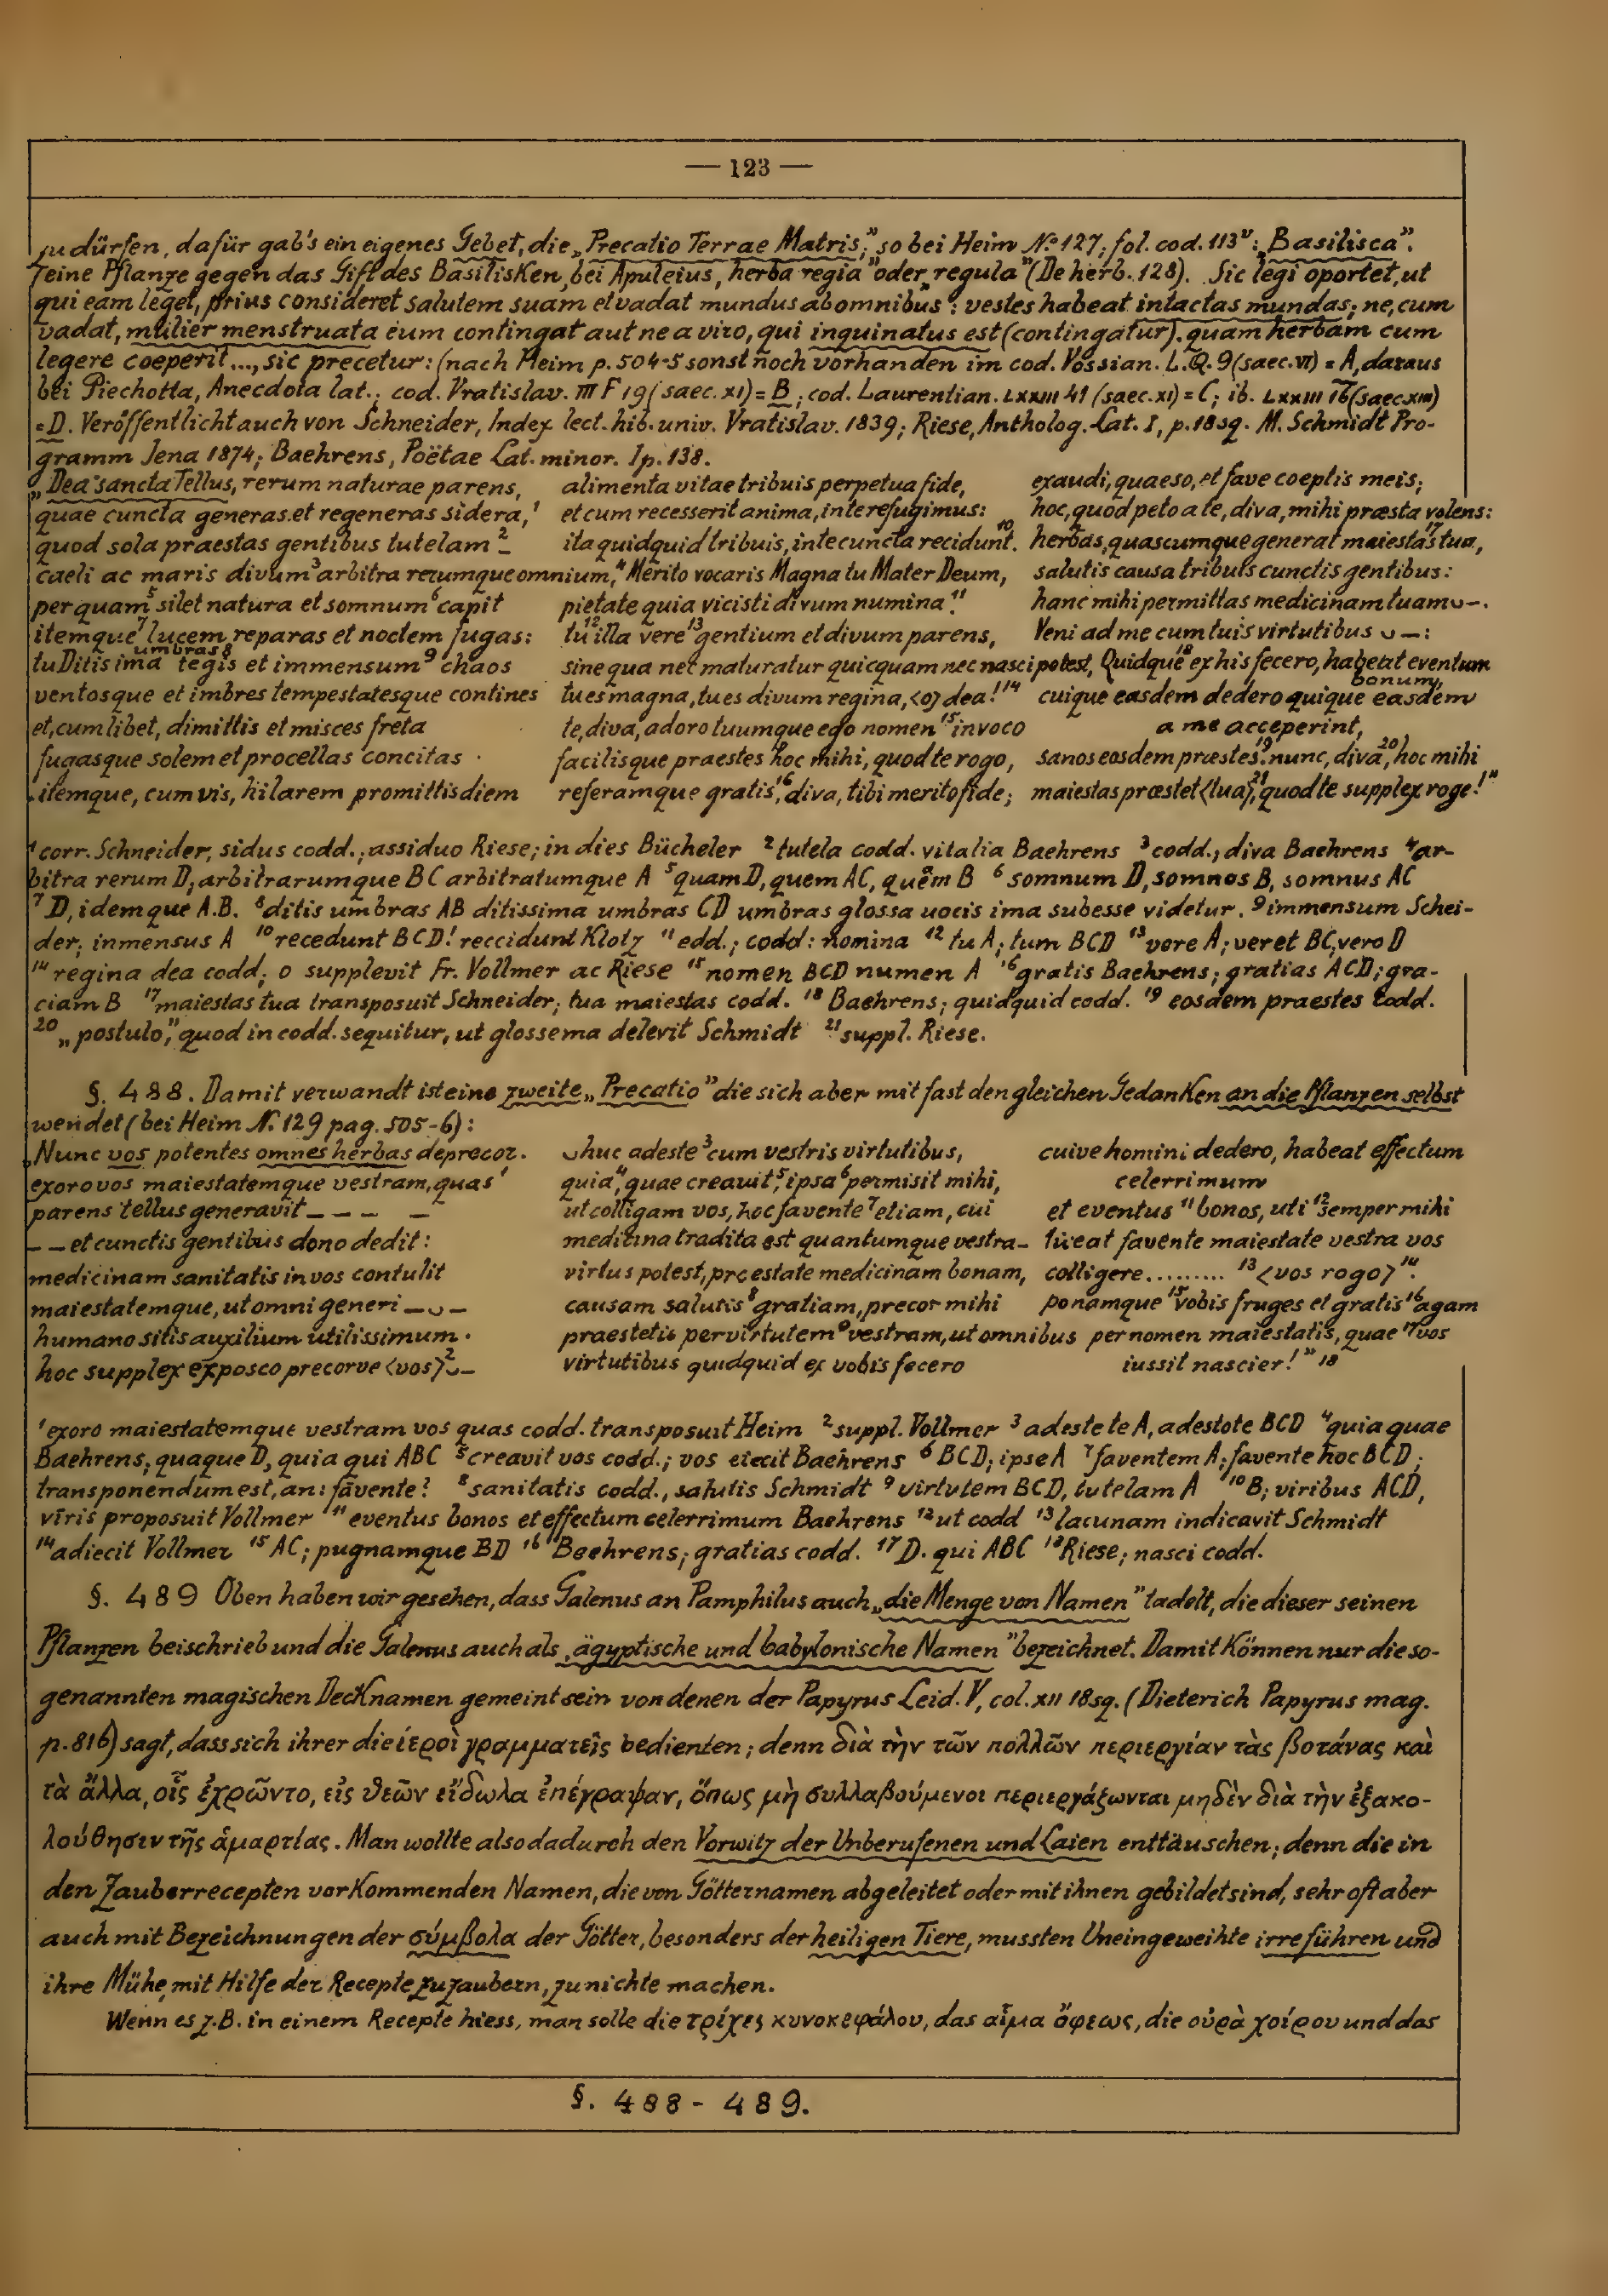 — 123 —
zu dürfen, dafür gab's ein eigenes Gebet, die „Precatio Terrae Matris," so bei Heim No 127; fol. cod. 113v: „Basilisca".
[eine Pflanze gegen das Gift des Basilisken, bei Apuleius, „herba regia" oder „regula" (De herb. 128). Sic legi oportet, ut
qui eam leget, prius consideret salutem suam et vadat mundus ab omnibus: vestes habeat intactas mundas; ne, cum
vadat, mulier menstruata eum contingat aut ne a viro, qui inquinatus est (contingatur). quam herbam cum
legere coeperit..., sic precetur: (nach Heim p. 504-5 sonst noch vorhanden im cod. Vossian. L. Q. 9 (saec. VI) = A, daraus
bei Piechotta, Anecdota lat.; cod. Vratislav. III F 19 (saec. XI) = B; cod. Laurentian. LXXIII 41 (saec. XI) = C; ib. LXXIII 16 (saec. XIII)
= D. Veröffentlicht auch von Schneider, Index lect. hib. univ. Vratislav. 1839; Riese, Antholog. Lat. I, p. 18sq. M. Schmidt Pro-
gramm Jena 1874; Baehrens, Poëtae Lat. minor. I p. 138.
„Dea sancta Tellus, rerum naturae parens,
quae cuncta generas et regeneras sidera,1
quod sola praestas gentibus tutelam 2 –
caeli ac maris divum3 arbitra rerumque omnium,4
per quam5 silet natura et somnum6 capit
itemque7 lucem reparas et noctem fugas:
tu Ditis ima umbras8 tegis et immensum9 chaos
ventosque et imbres tempestatesque contines
et, cum libet, dimittis et misces freta
fugasque solem et procellas concitas ·
itemque, cum vis, hilarem promittis diem
alimenta vitae tribuis perpetua fide,
et cum recesserit anima, in te refugimus:
ita quidquid tribuis, in te cuncta recidunt.10
Merito vocaris Magna tu Mater Deum,
pietate quia vicisti divum numina11!
tu12 illa vere13 gentium et divum parens,
sine qua nec maturatur quicquam nec nasci potest,
tu es magna, tu es divum regina, <o> dea!14
te, diva, adoro tuumque ego nomen15 invoco
facilisque praestes hoc mihi, quod te rogo,
referamque gratis16, diva, tibi merito fide;
exaudi, quaeso, et fave coeptis meis;
hoc, quod peto a te, diva, mihi præsta volens:
herbas, quascumque generat maiestas17 tua,
salutis causa tribuis cunctis gentibus:
hanc mihi permittas medicinam tuam ᴗ–.
Veni ad me cum tuis virtutibus ᴗ–:
Quidque18 ex his fecero, habeat eventum bonum,
cuique easdem dedero quique easdem
a me acceperint,
sanos eosdem præstes19. nunc, diva,20) hoc mihi
maiestas præstet <tua>,21 quod te supplex rogo!"
1 corr. Schneider, sidus codd.; assiduo Riese; in dies Bücheler 2 tutela codd. vitalia Baehrens 3 codd., diva Baehrens 4 ar-
bitra rerum D; arbitrarumque BC arbitratumque A 5 quam D, quem AC, quẽm B 6 somnum D, somnos B, somnus AC
7 D, idemque A.B. 8 ditis umbras AB ditissima umbras CD umbras glossa uocis ima subesse videtur. 9 immensum Schei-
der; inmensus A 10 recedunt BCD! reccidunt Klotz 11 edd.; codd: nomina 12 tu A; tum BCD 13 vere A; veret BC, vero D
14 regina dea codd; o supplevit Fr. Vollmer ac Riese 15 nomen BCD numen A 16 gratis Baehrens; gratias ACD; gra-
ciam B 17 maiestas tua transposuit Schneider; tua maiestas codd. 18 Baehrens; quidquid codd. 19 eosdem praestes codd.
20 „postulo," quod in codd. sequitur, ut glossema delevit Schmidt 21 suppl. Riese.
§. 488. Damit verwandt ist eine zweite „Precatio" die sich aber mit fast den gleichen Gedanken an die Pflanzen selbst
wendet (bei Heim N. 129 pag. 505-6):
„Nunc vos potentes omnes herbas deprecor.
exoro vos maiestatemque vestram, quas1
parens tellus generavit – – – –
– – et cunctis gentibus dono dedit:
medicinam sanitatis in vos contulit
maiestatemque, ut omni generi – ᴗ –
humano sitis auxilium utilissimum ·
hoc supplex exposco precorve <vos>2 ᴗ –
ᴗ huc adeste3 cum vestris virtutibus,
quia4, quae creavit5, ipsa6 permisit mihi,
ut colligam vos, hoc favente7 etiam, cui
medicina tradita est quantumque vestra –
virtus potest, præestate medicinam bonam,
causam salutis8 gratiam, precor mihi
praestetis per virtutem9 vestram, ut omnibus
virtutibus quidquid ex vobis fecero
cuive homini dedero, habeat effectum
celerrimum
et eventus11 bonos, uti12 semper mihi
liceat favente maiestate vestra vos
colligere......... 13 <vos rogo>14.
ponamque15 vobis fruges et gratis16 agam
per nomen maiestatis, quae17 vos
iussit nascier!" 18
1 exoro maiestatemque vestram vos quas codd. transposuit Heim 2 suppl. Vollmer 3 adeste te A, adestote BCD 4 quia quae
Baehrens; quaque D, quia qui ABC 5 creavit vos codd.; vos eiecit Baehrens 6 BCD; ipse A 7 faventem A; favente hoc BCD;
transponendum est, an: favente? 8 sanitatis codd., salutis Schmidt 9 virtutem BCD, tutelam A 10 B; viribus ACD,
viris proposuit Vollmer 11 eventus bonos et effectum celerrimum Baehrens 12 ut codd 13 lacunam indicavit Schmidt
14 adiecit Vollmer 15 AC; pugnamque BD 16 Baehrens; gratias codd. 17 D. qui ABC 18 Riese; nasci codd.
§. 489 Oben haben wir gesehen, dass Galenus an Pamphilus auch „die Menge von Namen" tadelt, die dieser seinen
Pflanzen beischrieb und die Galenus auch als „ägyptische und babylonische Namen" bezeichnet. Damit können nur die so-
genannten magischen Decknamen gemeint sein von denen der Papyrus Leid. V, col. XII 18sq. (Dieterich Papyrus mag.
p. 816) sagt, dass sich ihrer die ἱεροὶ γραμματεῖς bedienten; denn διὰ τὴν τῶν πολλῶν περιεργίαν τὰς βοτάνας καὶ
τὰ ἄλλα, οἷς ἐχρῶντο, εἰς θεῶν εἴδωλα ἐπέγραψαν, ὅπως μὴ συλλαβούμενοι περιεργάζωνται μηδὲν διὰ τὴν ἐξακο-
λούθησιν τῆς ἁμαρτίας. Man wollte also dadurch den Vorwitz der Unberufenen und Laien enttäuschen; denn die in
den Zauberrecepten vorkommenden Namen, die von Götternamen abgeleitet oder mit ihnen gebildet sind, sehr oft aber
auch mit Bezeichnungen der σύμβολα der Götter, besonders der heiligen Tiere, mussten Uneingeweihte irreführen und
ihre Mühe, mit Hilfe der Recepte zu zaubern, zu nichte machen.
Wenn es z.B. in einem Recepte hiess, man solle die τρίχες κυνοκεφάλου, das αἷμα ὄφεως, die οὐρὰ χοίρου und das
§. 488 - 489.